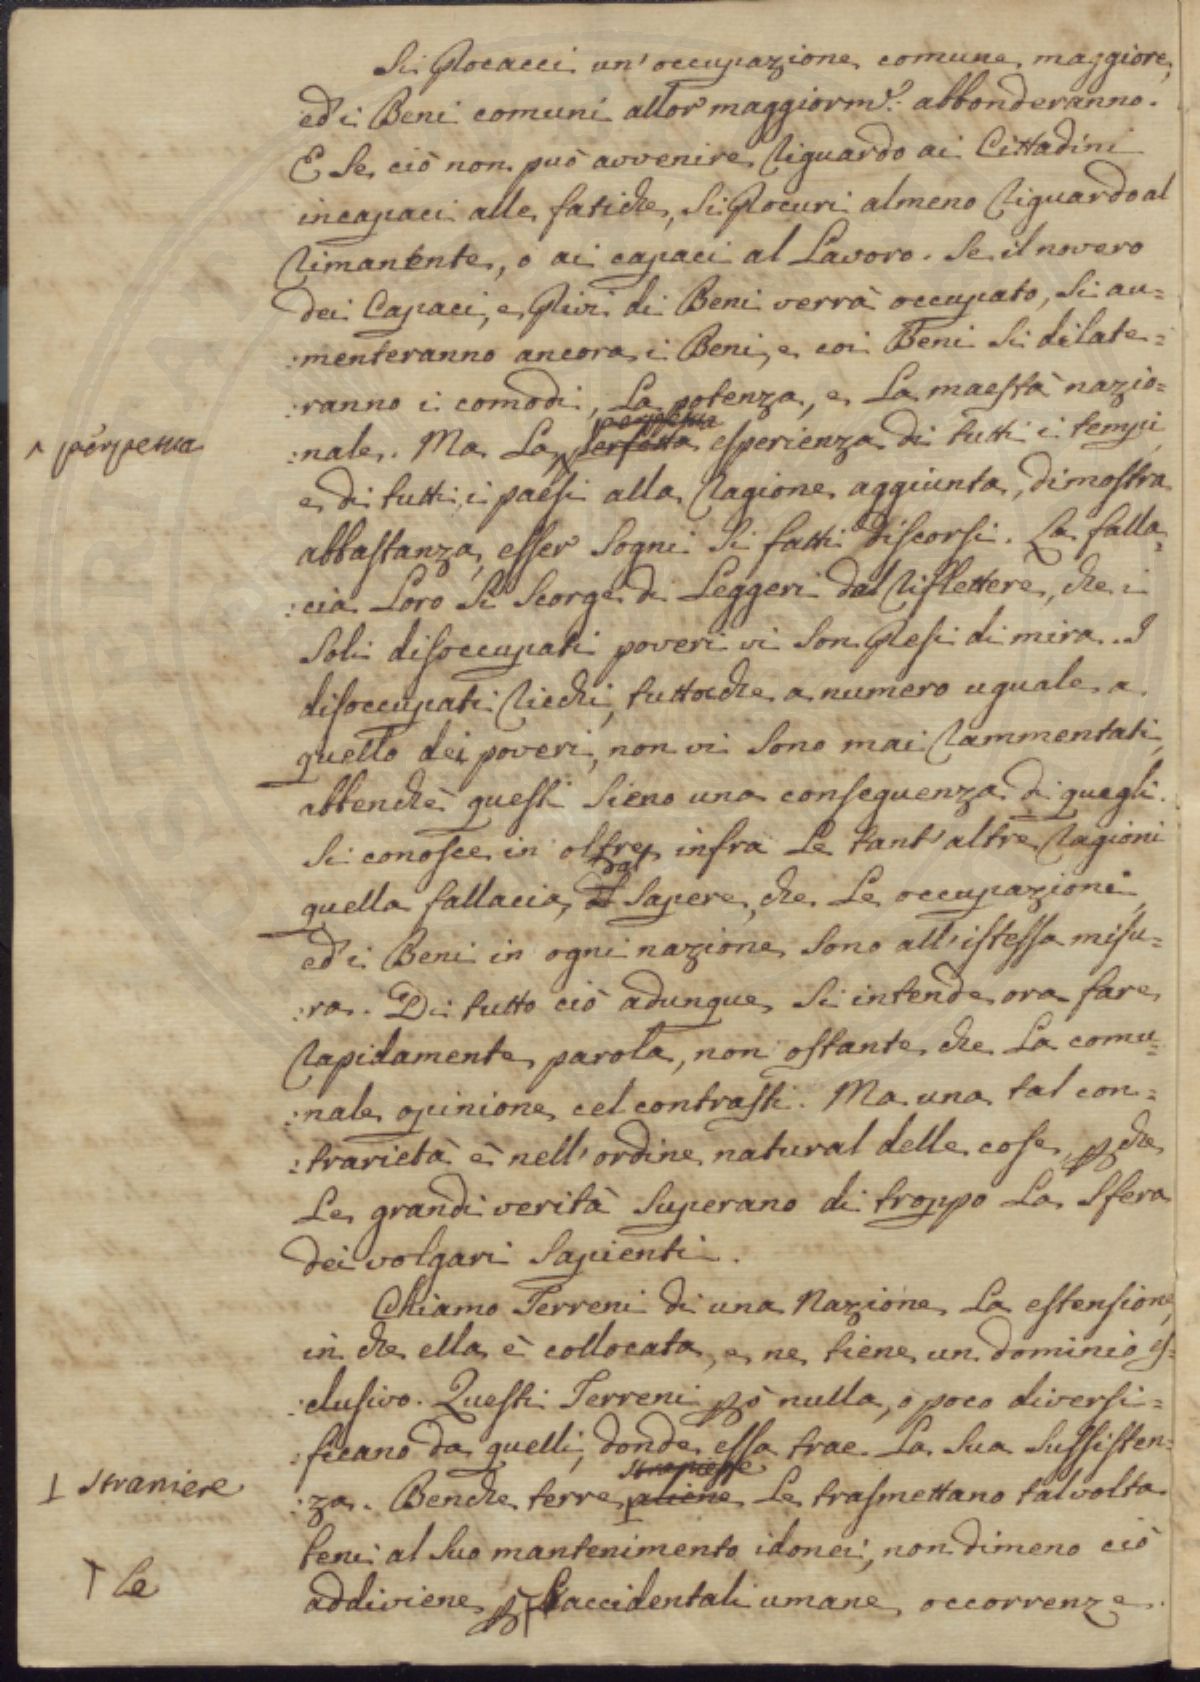 Si procacci un'occupazione comune maggiore,
ed i Beni comuni allor maggiorm.e abbonderanno.
E se ciò non può avvenire riguardo ai Cittadini
incapaci alle fatiche, si procuri almeno riguardo al
rimanente, o ai capaci al Lavoro. Se il novero
dei Capaci, e privi di Beni verrà occupato, si au=
:menteranno ancora i Beni, e coi Beni si dilate=
:ranno i comodi, La potenza, e La maestà nazio=
perpetua
:nale. Ma La perfetta esperienza di tutti i tempi
^ perpetua
e di tutti i paesi alla ragione aggiunta, dimostra
abbastanza, esser sogni si fatti discorsi. La falla=
:cia Loro si scorge di Leggeri dal riflettere, che i
soli disoccupati poveri vi son presi di mira. I
disoccupati ricchi, tuttoche a numero uguale a
quello dei poveri, non vi sono mai rammentati,
abbenchè questi sieno una conseguenza di quegli.
Si conosce in oltre infra Le tant'altre ragioni
dal
quella fallacia, sapere, che Le occupazioni,
ed i Beni in ogni nazione sono all'istessa misu=
:ra. Di tutto ciò adunque si intende ora fare
rapidamente parola, non ostante che La comu=
:nale opinione cel contrasti. Ma una tal con=
:trarietà è nell'ordine natural delle cose, pche
Le grandi verità superano di troppo La sfera
dei volgari sapienti.
Chiamo Terreni di una Nazione La estensione,
in che ella è collocata, e ne tiene un dominio es=
:clusivo. Questi Terreni pò nulla, o poco diversi=
:ficano da quelli, donde essa trae La sua sussisten=
straniere
:za. Benche terre aliene Le trasmettano talvolta
⊥ straniere
beni al suo mantenimento idonei, non dimeno ciò
addiviene p accidentali umane occorrenze.
† Le